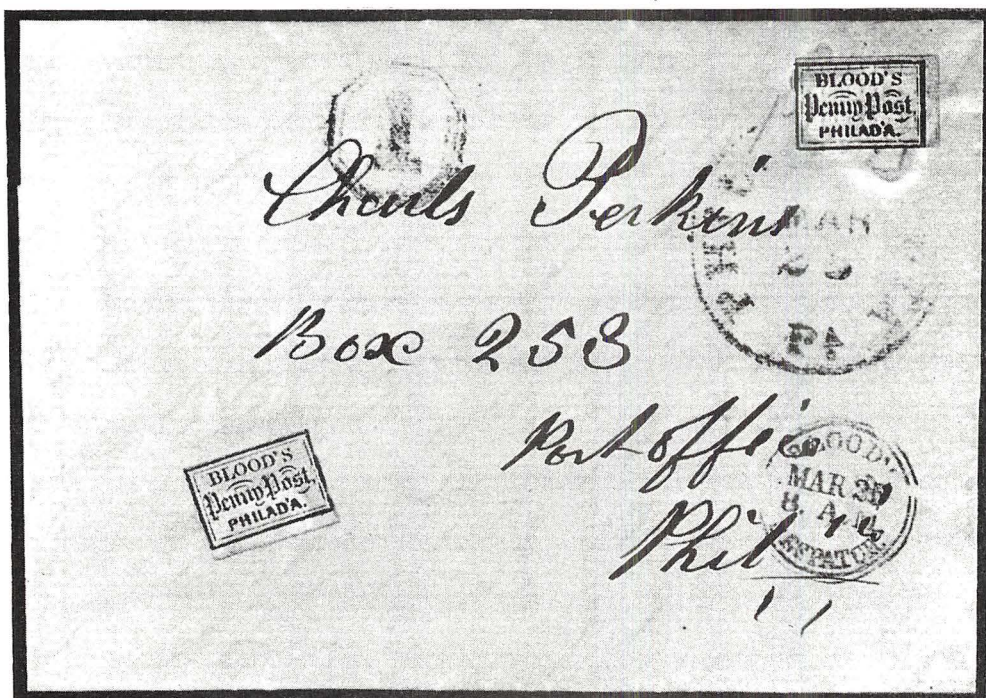 BLOOD'S
Penny Post,
PHILAD'A.
1
Charls Perkins
MAR
PA
Box 258
Post office
Phil
BLOOD'S
Penny Post,
PHILAD'A.
BLOOD'S
MAR
8 A.M.
DESPATCH